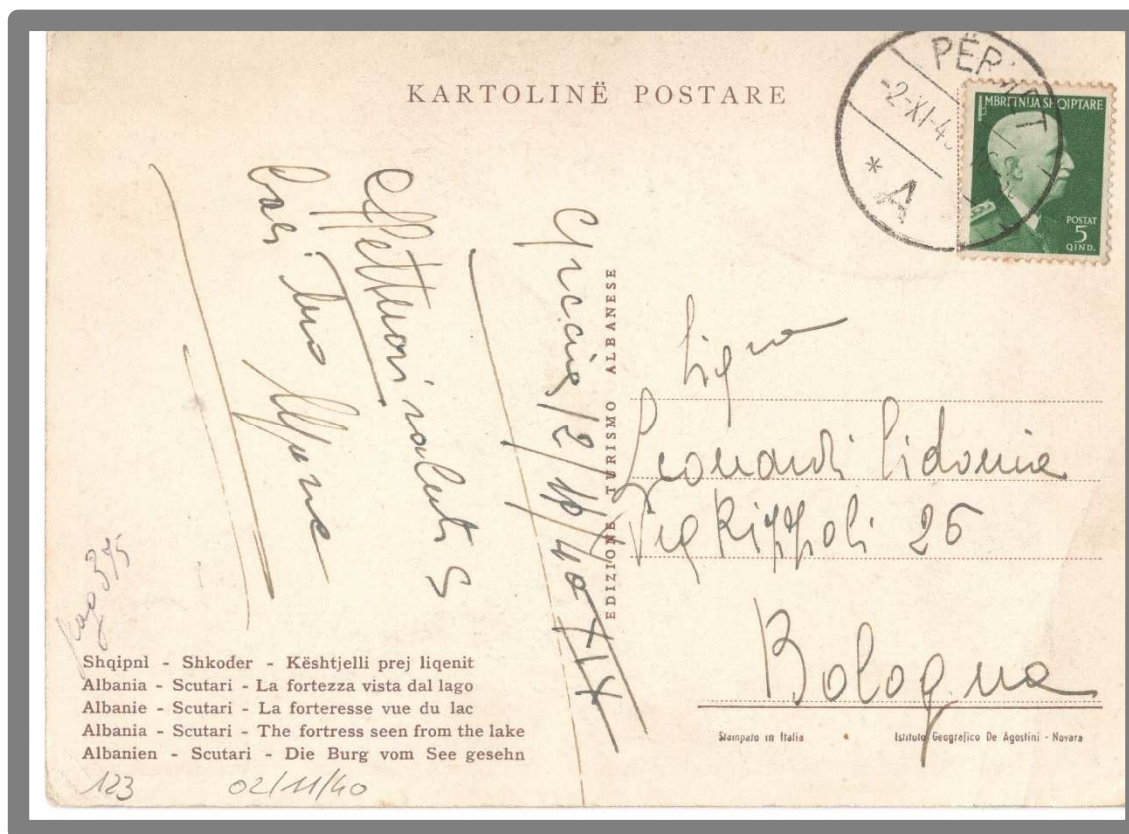 KARTOLINË POSTARE
PËRMET
-2-XI-4
* A
MBRETNIJA SHQIPTARE
POSTAT
5
QIND.
Affettuosi saluti e
baci tuo
Grecia / 2 / 10 / 40 XIX
EDIZIONE TURISMO ALBANESE
Sigra
Leonardi Sidonia
Via Rizzoli 26
Bologna
pag 375
Shqipnl - Shkoder - Kështjelli prej liqenit
Albania - Scutari - La fortezza vista dal lago
Albanie - Scutari - La forteresse vue du lac
Albania - Scutari - The fortress seen from the lake
Albanien - Scutari - Die Burg vom See gesehn
Stampato in Italia
Istituto Geografico De Agostini - Novara
123
02/11/40